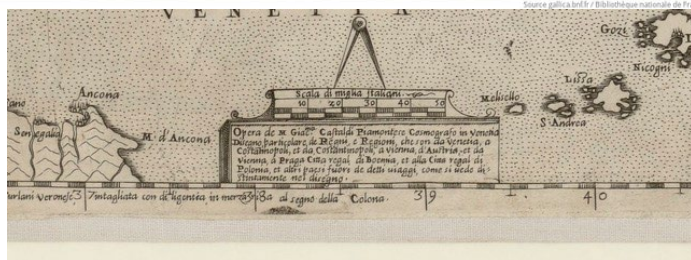 Source gallica.bnf.fr / Bibliothèque nationale de Fra
VENETIA
Gozi
Nicogni
Lissa
Ancona
Scala di miglia italiani
10 20 30 40 50
Meliselo
S. Andrea
Senegalia
M. d'Ancona
Opera de M Giac Castaldi Piamontese Cosmografo in Venetia
particolare de Regni, e Regioni, che son da Venetia, a
Costantinopoli, et da Costantinopoli, a Vienna, d'Austria, et da
Vienna, a Praga Citta regal di Boemia, et alla Citta regal di
Polonia, et altri paesi fuore de detti viaggi, come si vede di
stintamente nel disegno.
Veronese Intagliata con diligentia in al segno della Colona.
38 39 40